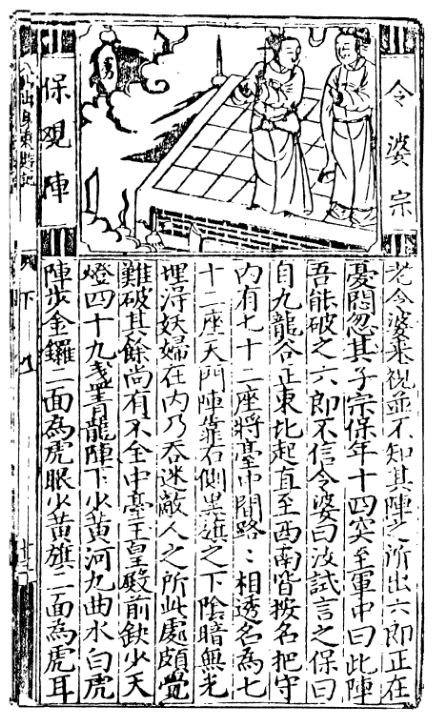 令婆宗
勇
保覌陣
老令婆來視並不知其陣之所出六郎正在
憂悶忽其子宗保年十四突至軍中曰此陣
吾能破之六郎不信令婆曰汝試言之保曰
自九龍谷正東北起直至西南皆按名把守
内有七十二座將臺中間路〻相透名為七
十二座天門陣靠右側黑旗之下陰暗無光
埋得妖婦在内乃吞迷敵人之所此處頗覺
難破其餘尚有不全中臺玉皇殿前缺少天
燈四十九盞青龍陣下少黄河九曲水白虎
陣少金鑼二面為虎眼少黄旗二面為虎耳
出身東遊記
下